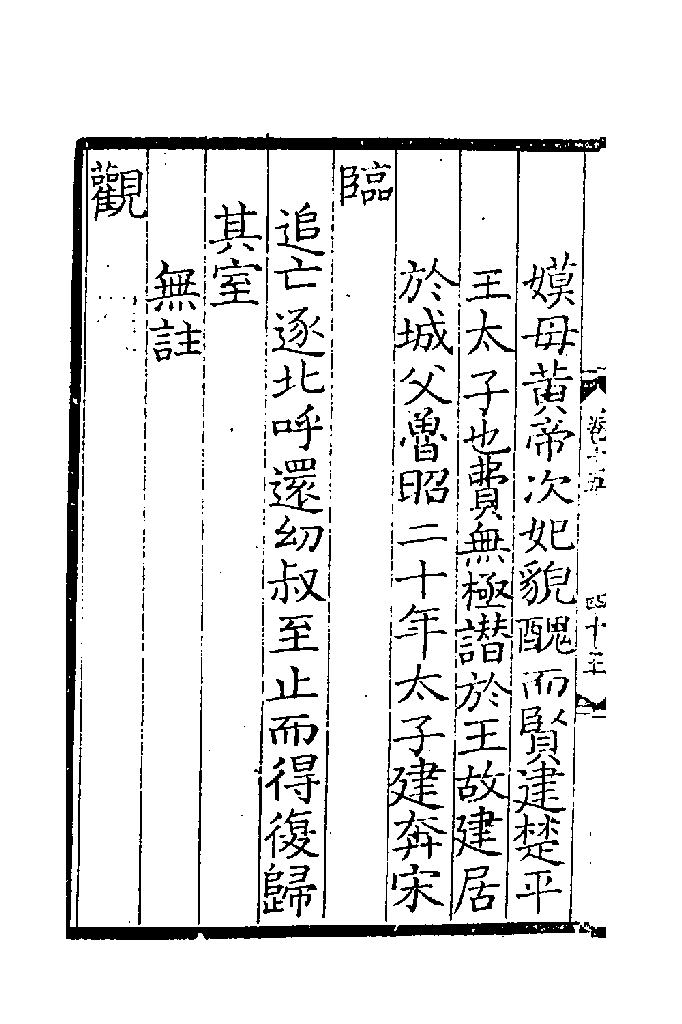 嫫母黄帝次妃貌醜而賢建楚平
王太子也費無極譖於王故建居
於城父魯昭二十年太子建奔宋
臨
追亡逐北呼還幼叔至止而得復歸
其室
無註
觀
卷十五
四十至